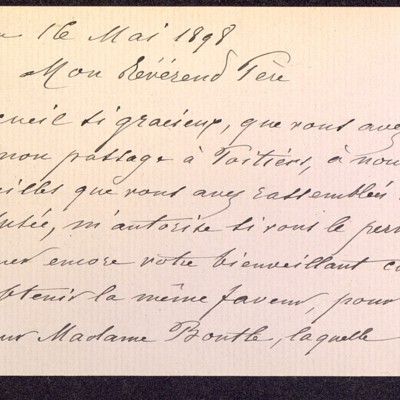 16 Mai 1898
Mon Révérend Père
cueil si gracieux, que vous avez
mon passage à Poitiers, à nou
eilles que vous avez rassemblées
usée, m'autorise si vous le perm
uer encore votre bienveillant c
btenir la même faveur, pour
ur Madame Boutle, laquelle